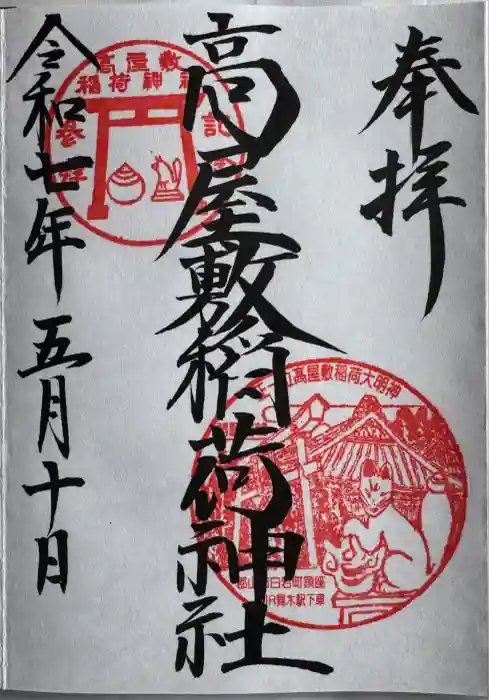 奉拝
高屋敷稲荷神社
令和七年五月十日
高屋敷
稲荷神社
参拝
記
高屋敷稲荷大明神
郡山市日和町鎮座
JR舞木駅下車